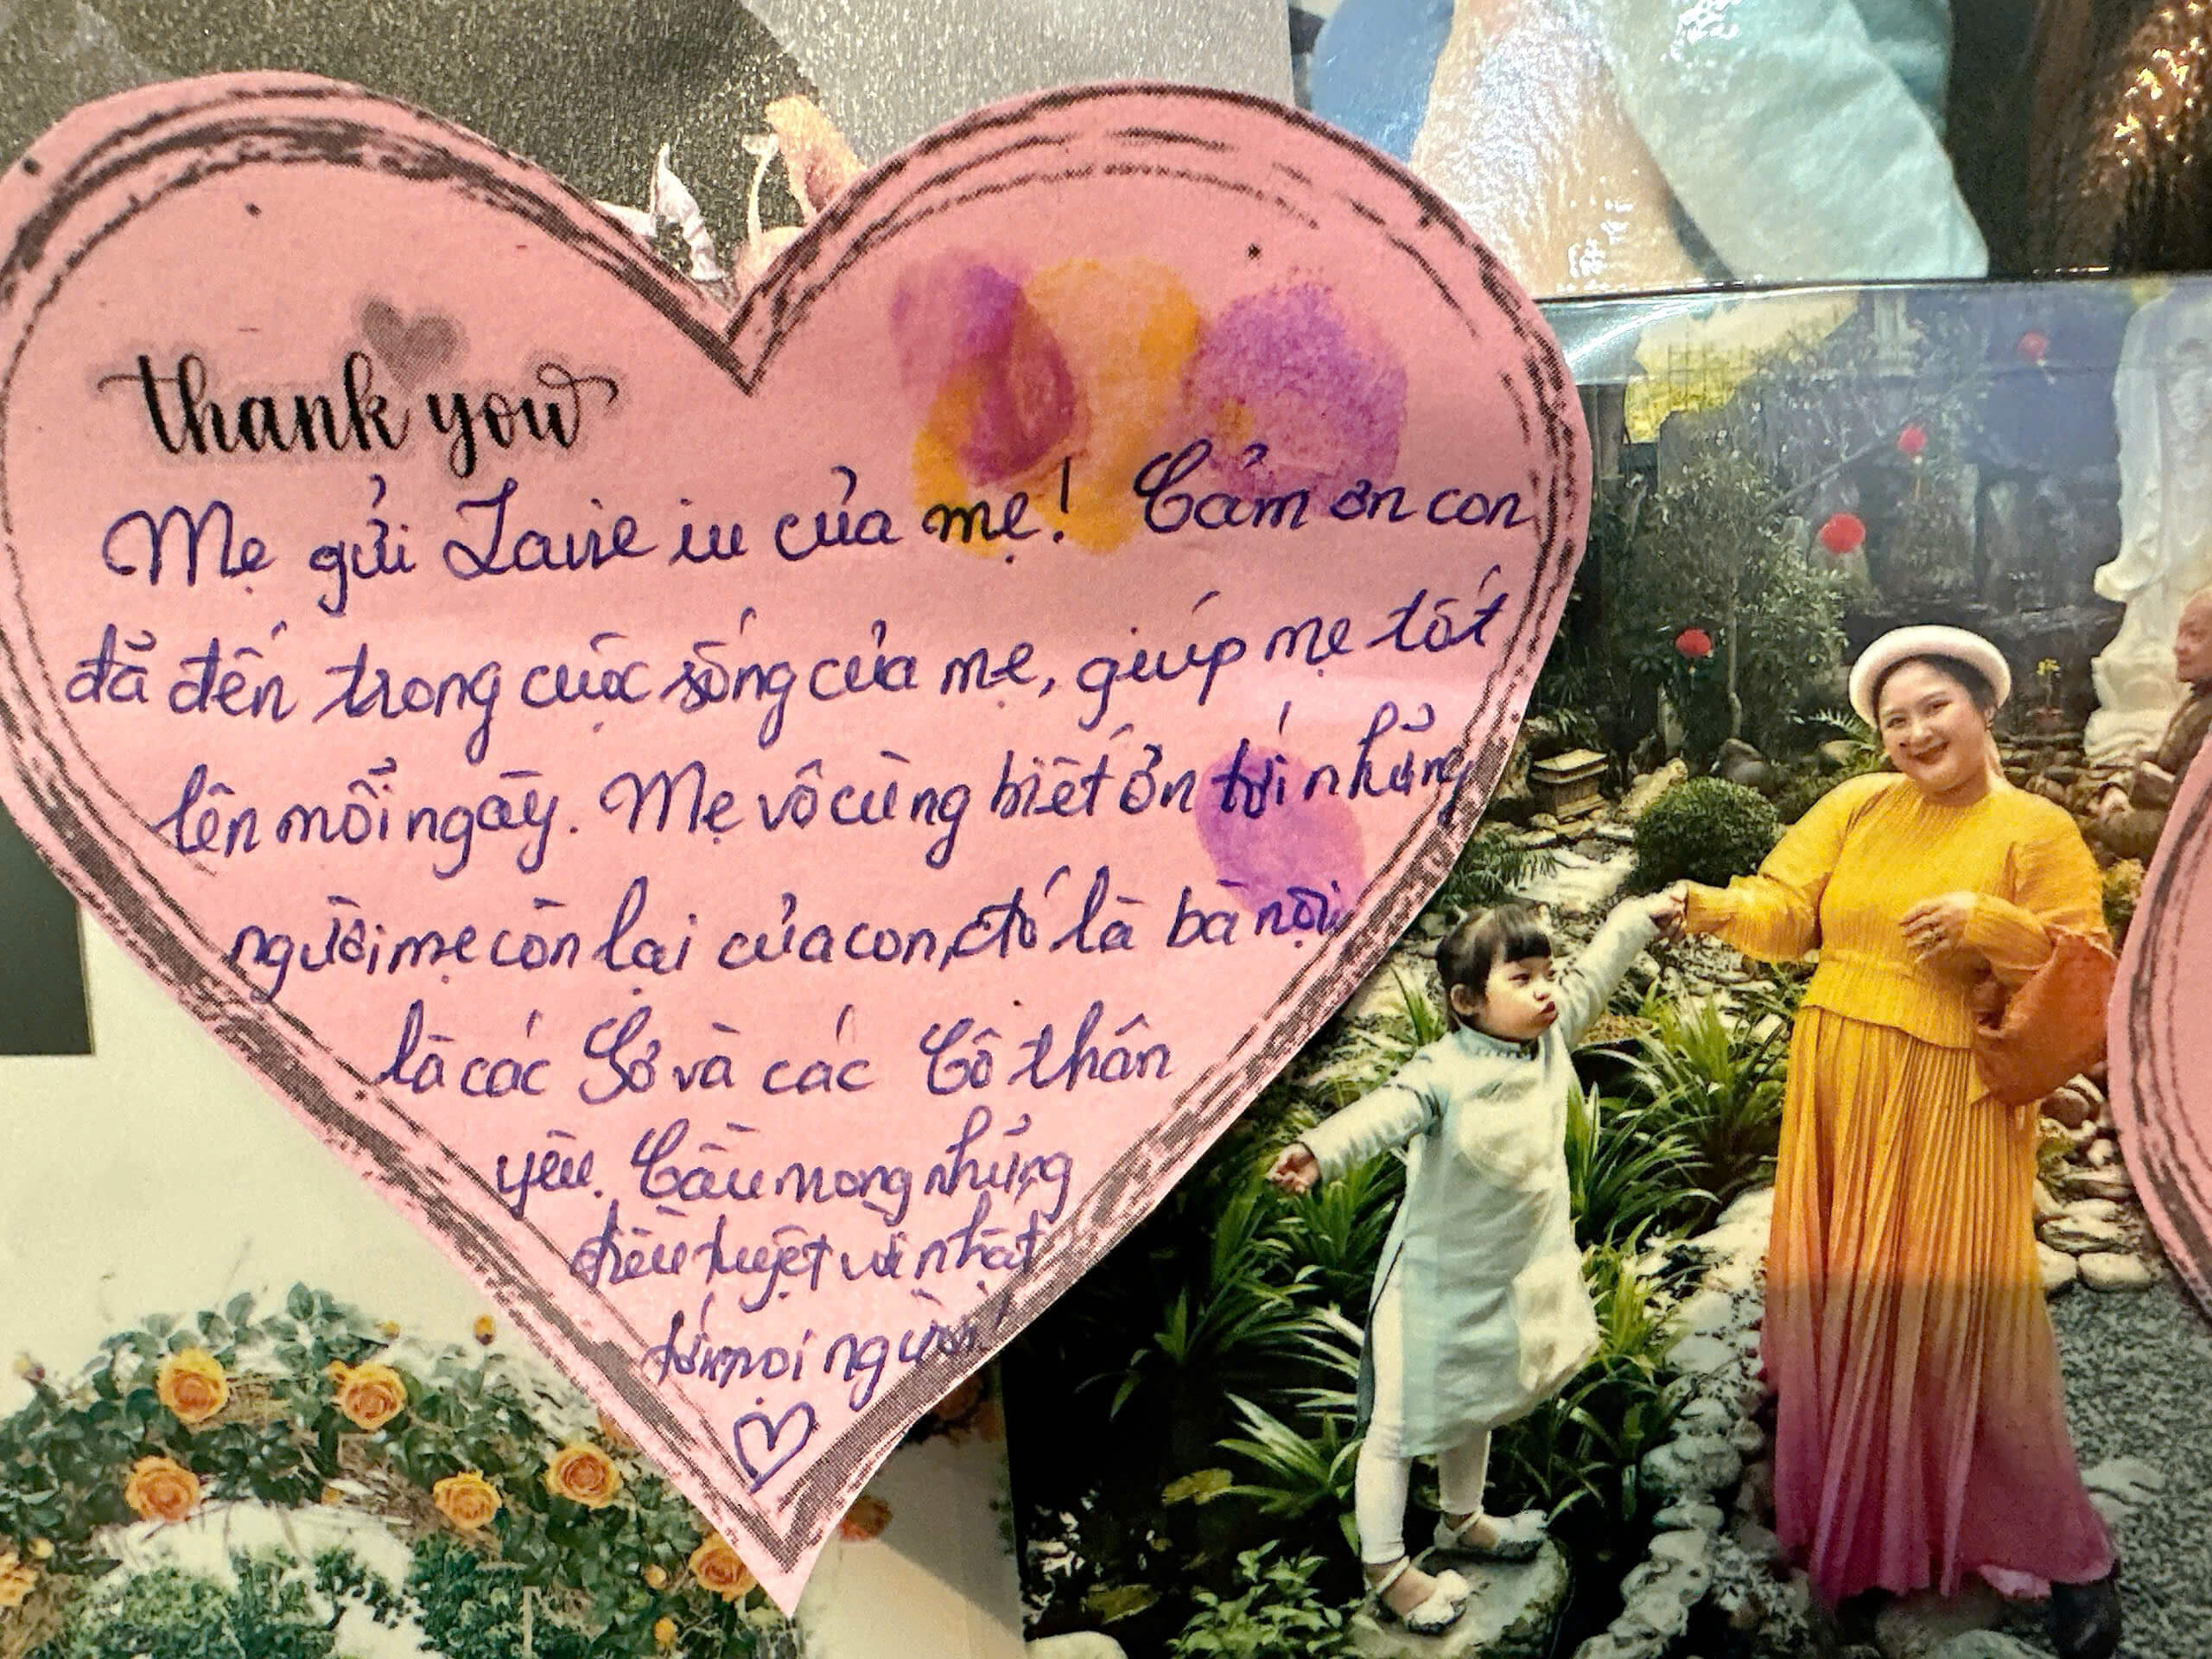 thank you
Mẹ gửi Lavie iu của mẹ! Cảm ơn con
đã đến trong cuộc sống của mẹ, giúp mẹ tốt
lên mỗi ngày. Mẹ vô cùng biết ơn tới những
người mẹ còn lại của con, đó là bà nội,
là các Sơ và các Cô thân
yêu. Cầu mong những
điều tuyệt vời nhất
tới mọi người!